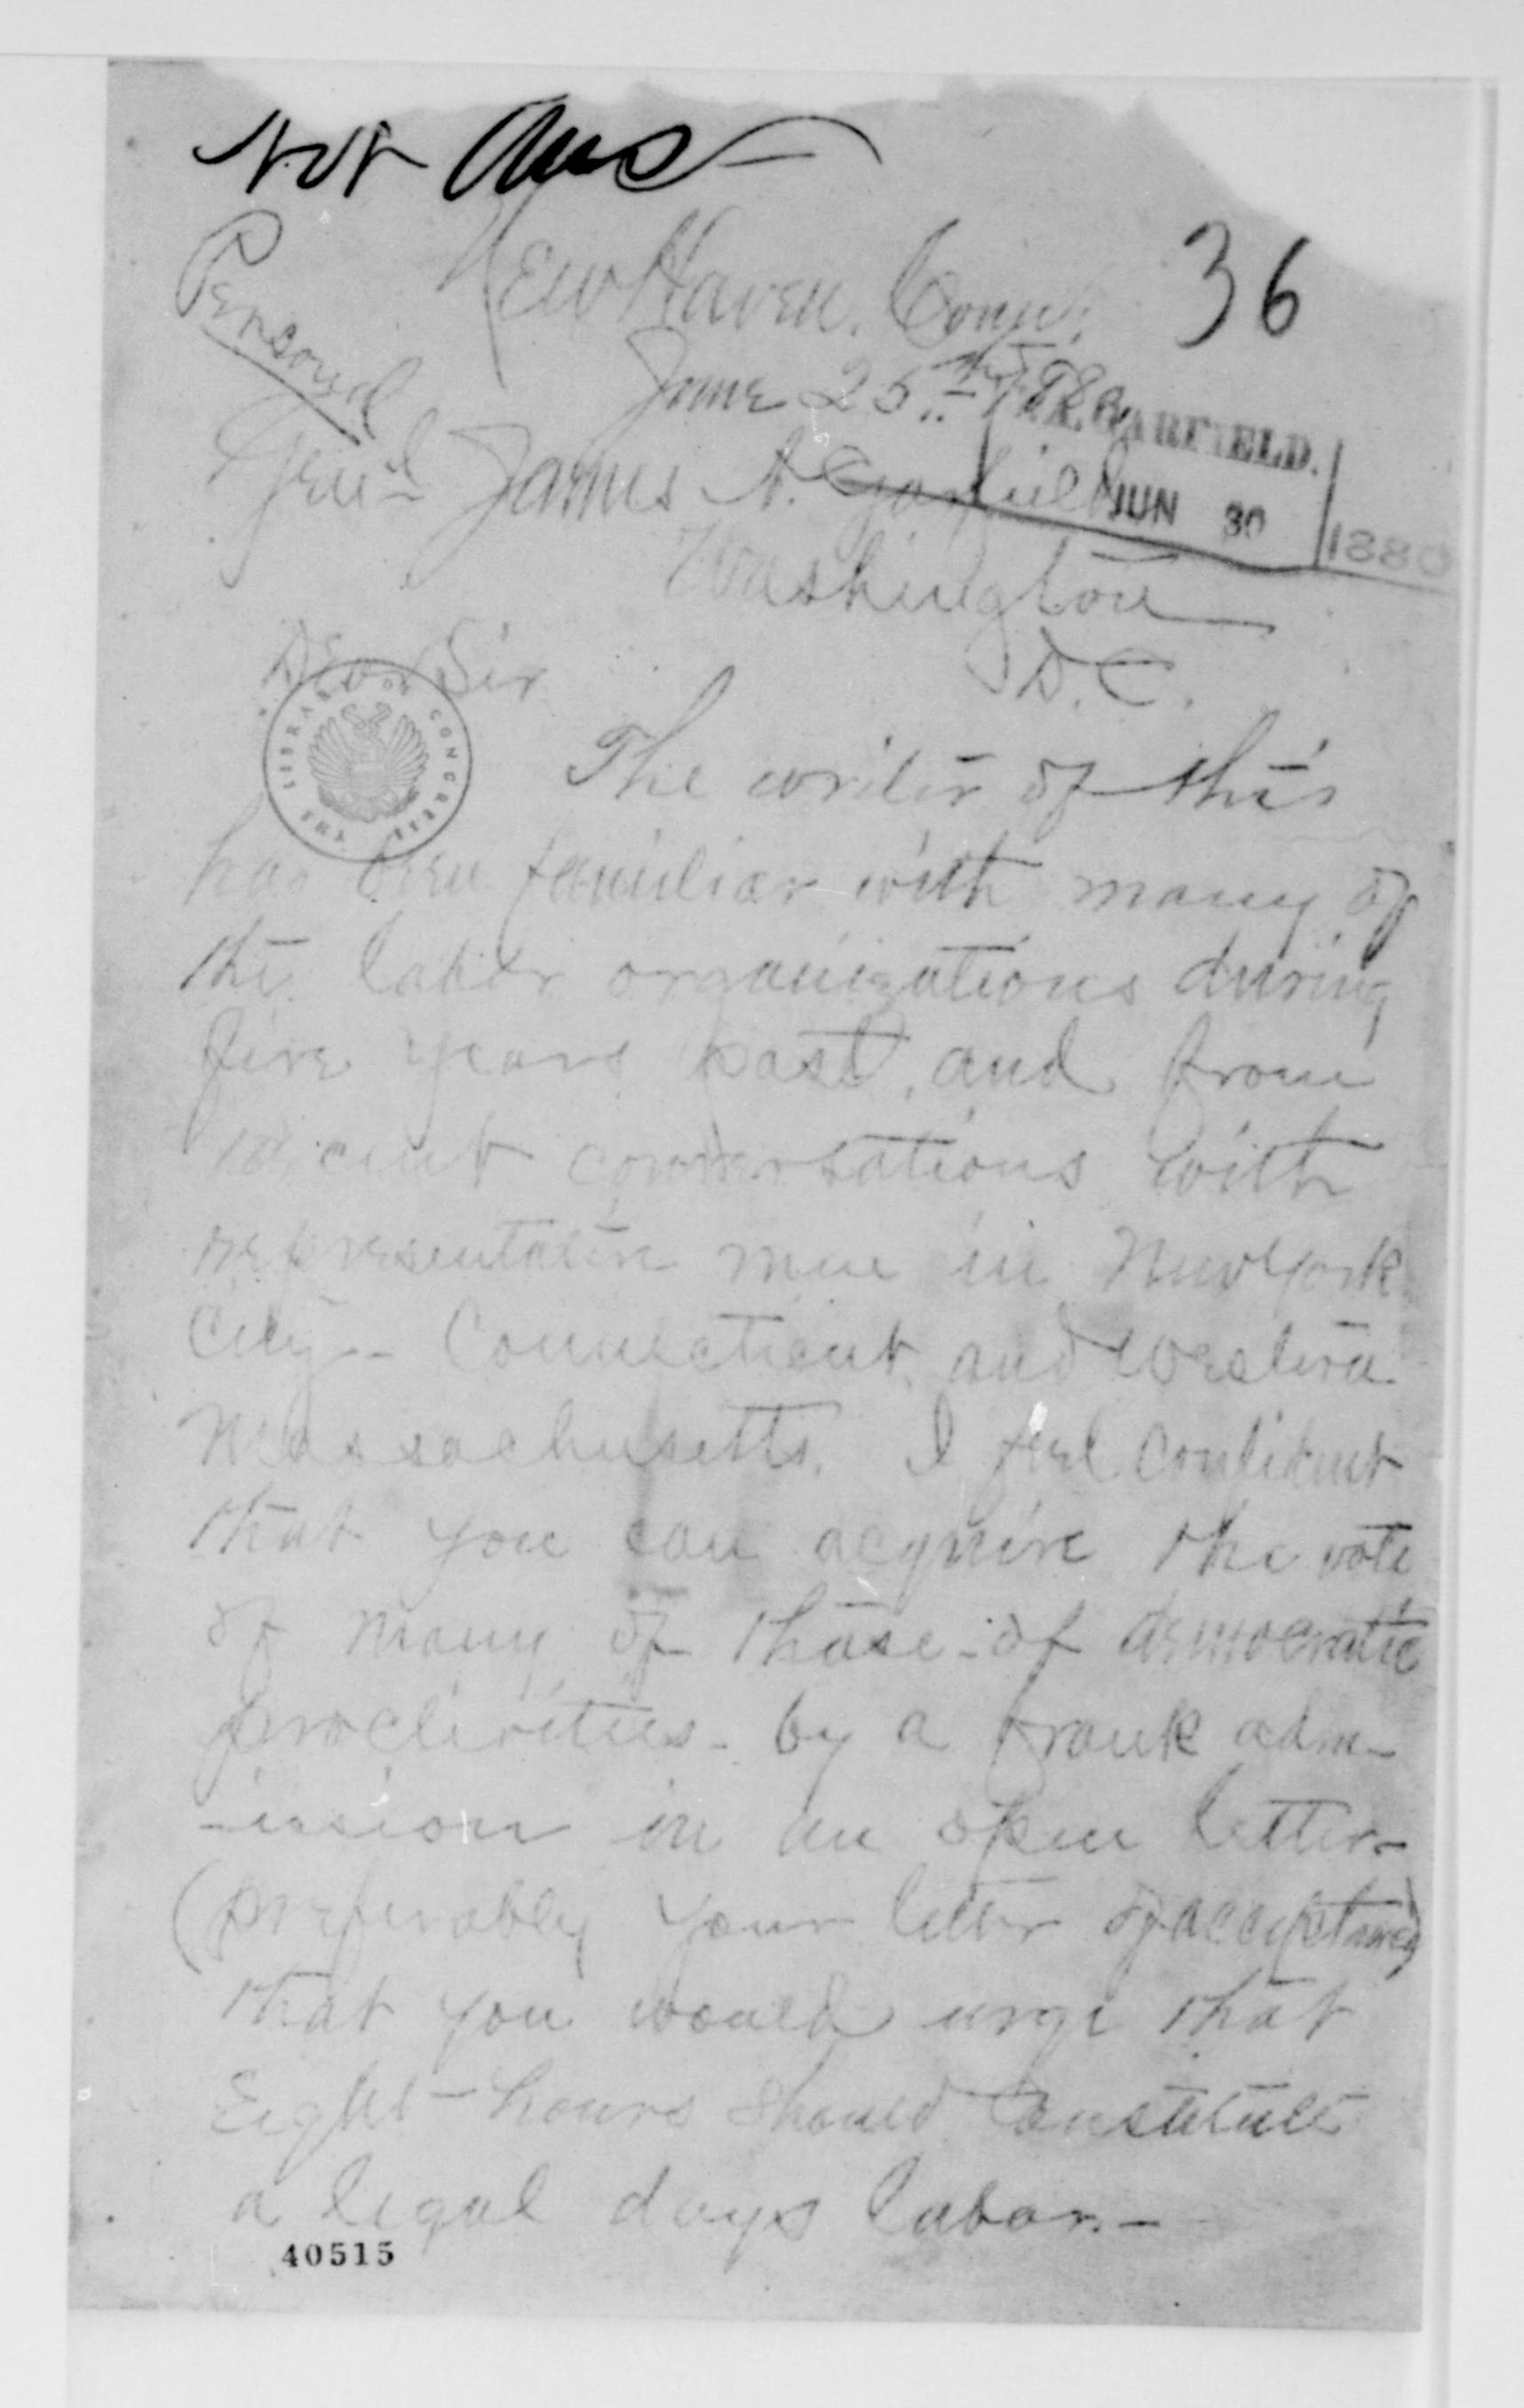 Not Ans
36
Personal
New Haven. Conn.
June 25th 1880
J.A. GARFIELD.
JUN 30 1880
Gen'l James A. Garfield
Washington
D.C.
Dear Sir
THE LIBRARY OF CONGRESS
The writer of this
has been familiar with many of
the labor organizations during
five years past, and from
recent conversations with
representative men in New York
City - Connecticut and western
Massachusetts. I feel confident
that you can acquire the vote
of many of those - of democratic
proclivities - by a frank adm-
-ission in an open letter
(preferably your letter of acceptance)
that you would urge that
Eight - hours should constitute
a legal days labor. -
40515